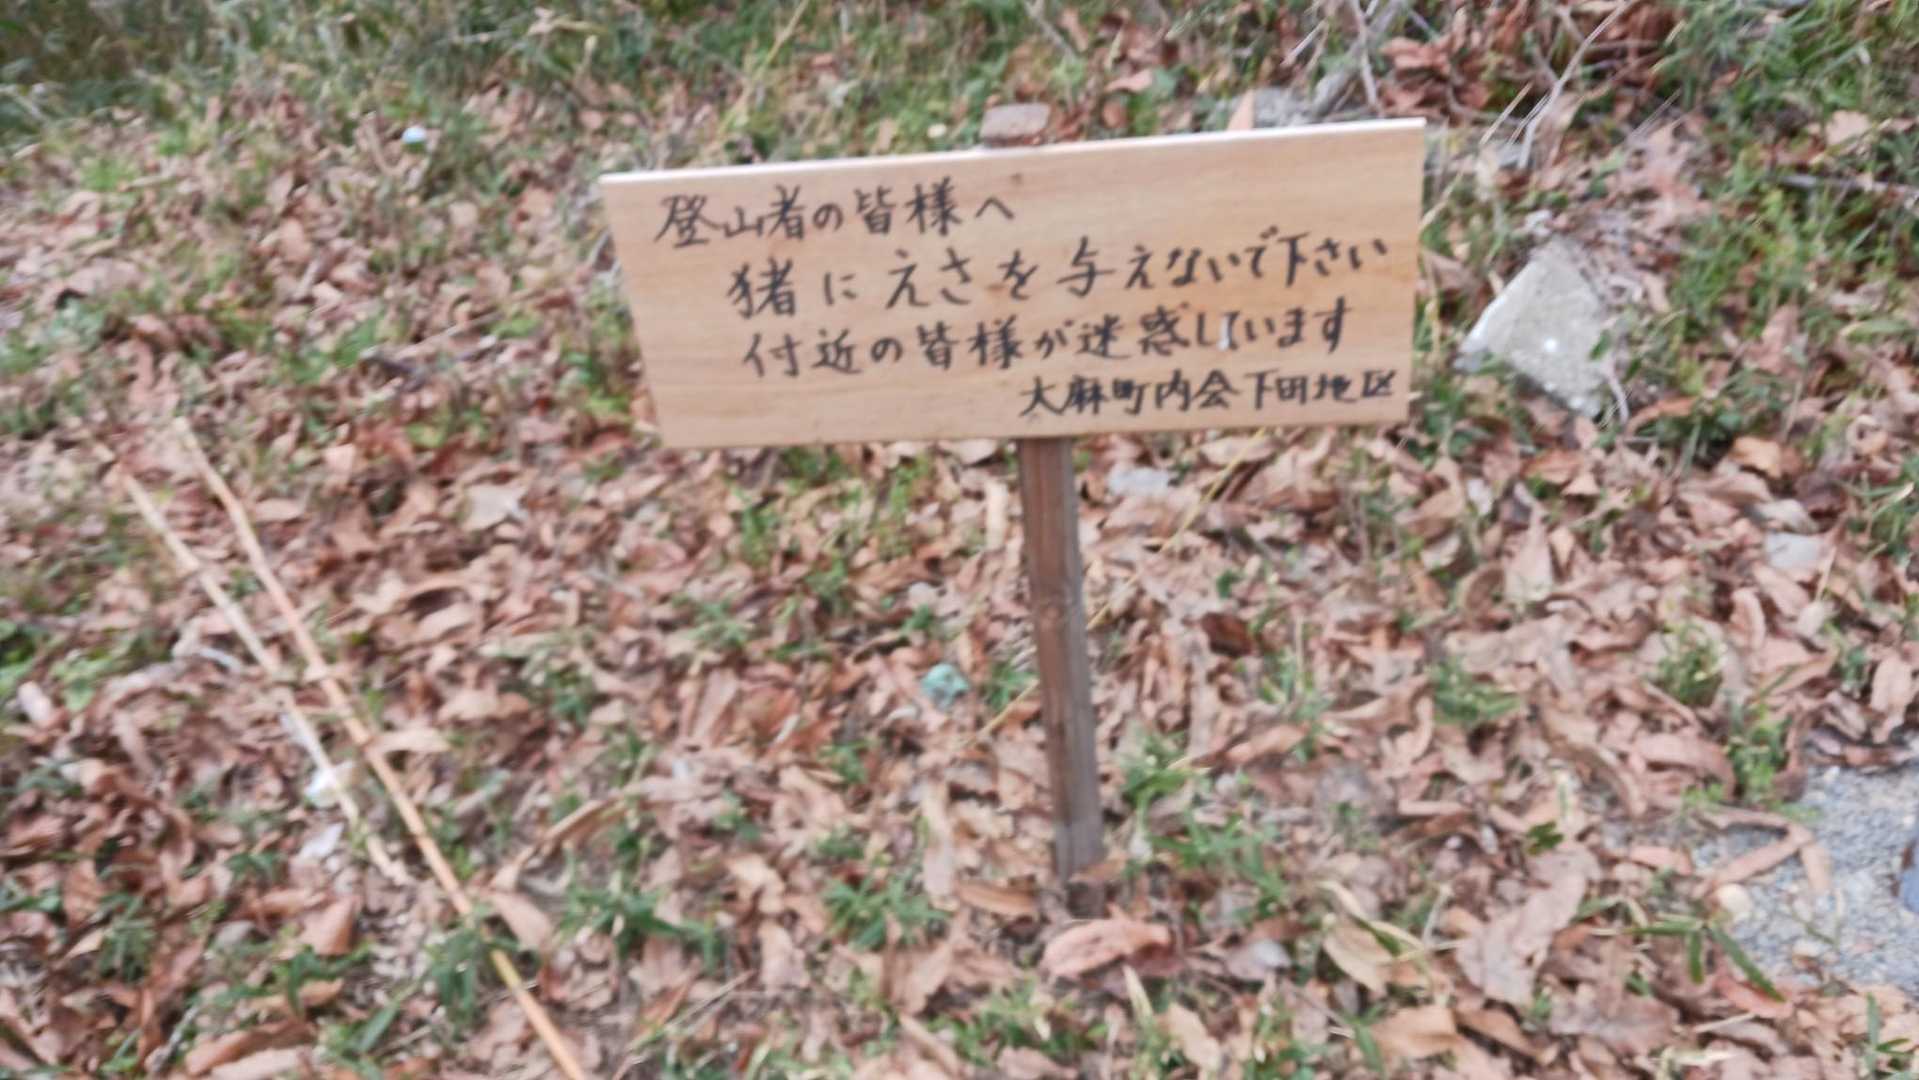 登山者の皆様へ
猪にえさを与えないで下さい
付近の皆様が迷惑しています
大麻町内会下田地区